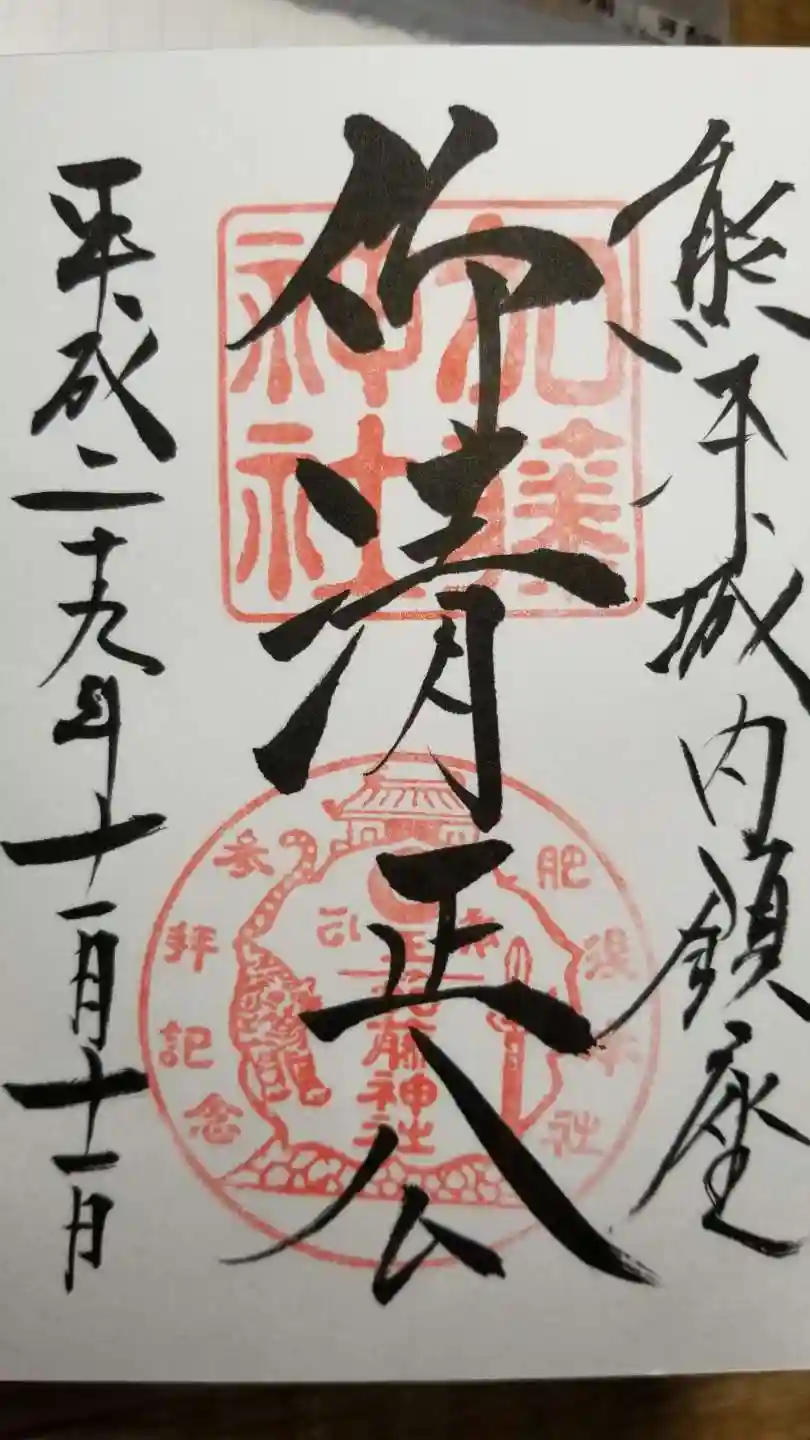 熊本城内鎮座
仰清正公
平成二十九年十一月十一日
加藤
神社
肥後本社
参拝記念
加藤神社